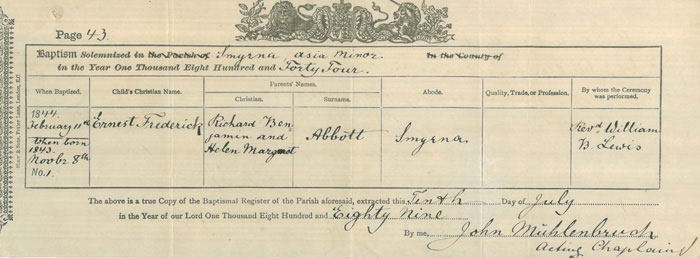 Page 43
Baptism Solemnized in the Parish of Smyrna asia minor In the County of
in the Year One Thousand Eight Hundred and Forty Four.
Parents' Names.
When Baptized. Child's Christian Name. Christian. Surname. Abode. Quality, Trade, or Profession. By whom the Ceremony was performed.
1844.
February 11th
when born
1843.
Novbr 8th
No. 1.
Ernest Frederick
Richard Ben
jamin and
Helen Margaret
Abbott
Smyrna
Revd William
B. Lewis
The above is a true Copy of the Baptismal Register of the Parish aforesaid, extracted this Tenth Day of July
in the Year of our Lord One Thousand Eight Hundred and Eighty Nine
By me, John Mühlenbruch
Acting Chaplain